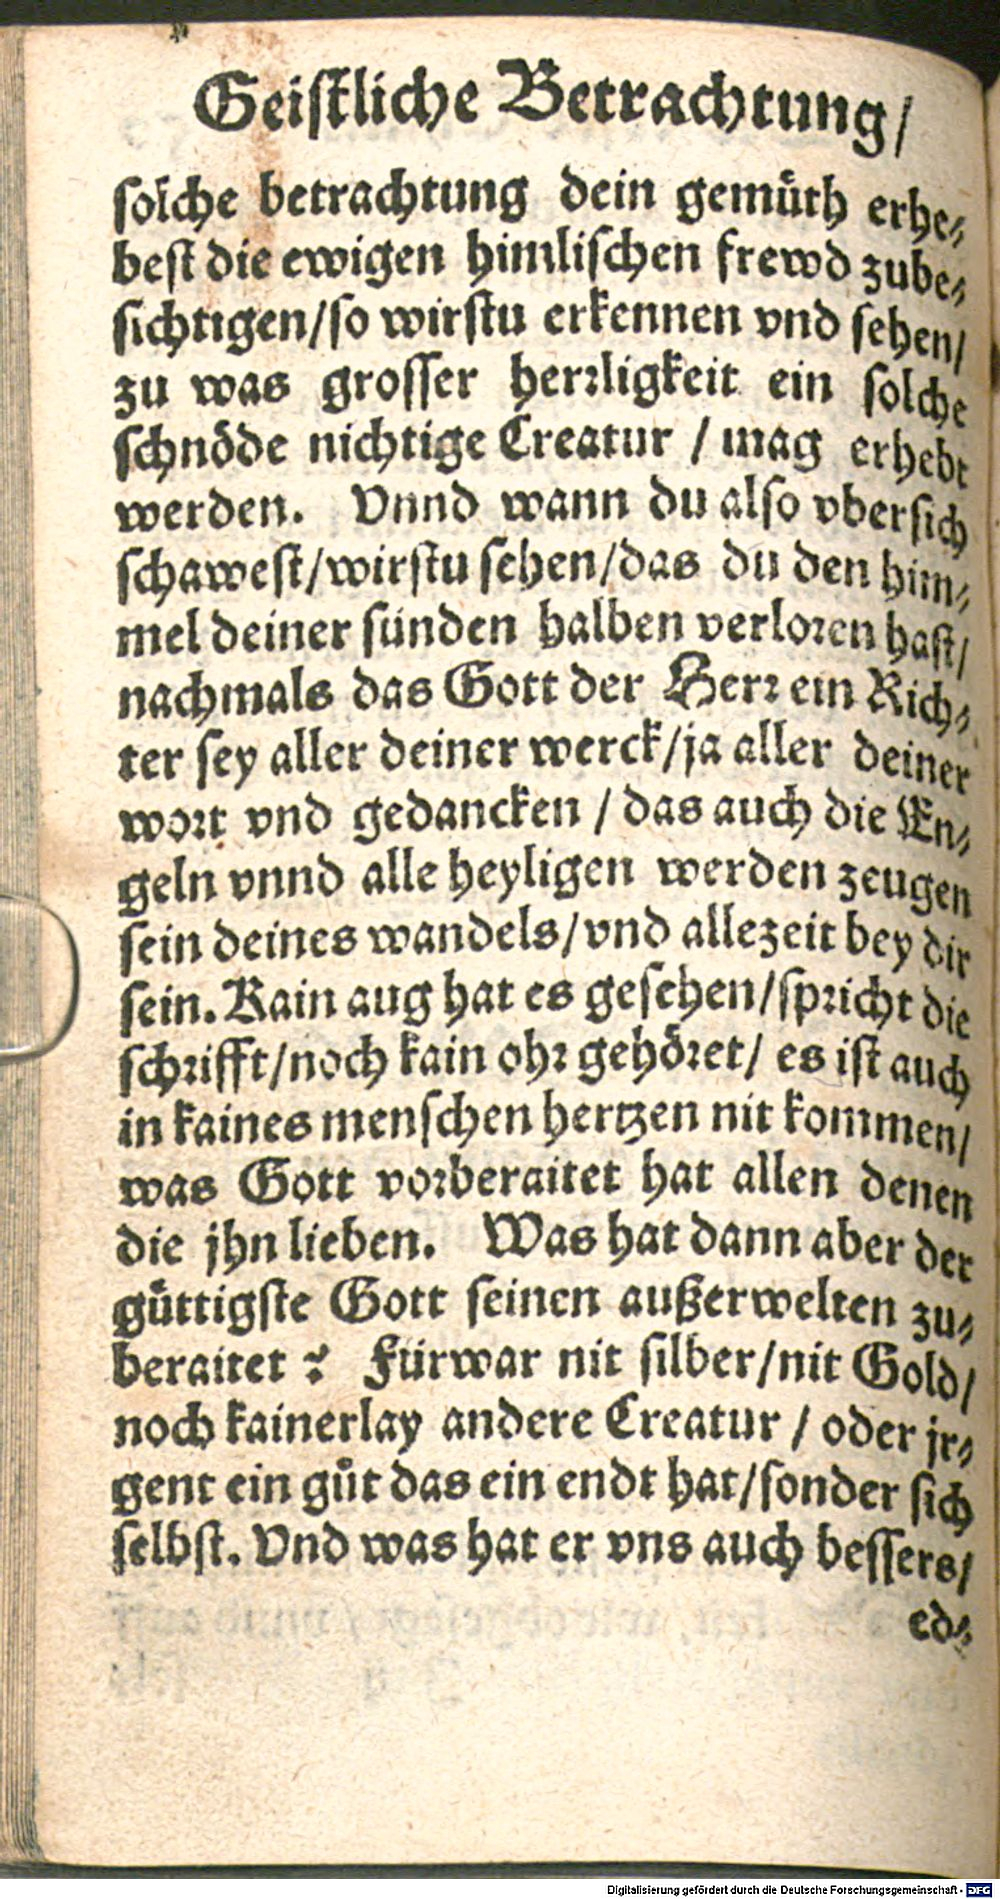 Geistliche Betrachtung/
solche betrachtung dein gemuͤth erhe⸗
best die ewigen himlischen frewd zube⸗
sichtigen/so wirstu erkennen vnd sehen/
zu was grosser herrligkeit ein solche
schnoͤde nichtige Creatur / mag erhebt
werden. Vnnd wann du also vbersich
schawest/wirstu sehen/das du den him⸗
mel deiner sünden halben verloren hast/
nachmals das Gott der Herr ein Rich⸗
ter sey aller deiner werck/ja aller deiner
wort vnd gedancken / das auch die En⸗
geln vnnd alle heyligen werden zeugen
sein deines wandels/vnd allezeit bey dir
sein. Kain aug hat es gesehen/spricht die
schrifft/noch kain ohr gehoͤret/ es ist auch
in kaines menschen hertzen nit kommen/
was Gott vorberaitet hat allen denen
die jhn lieben. Was hat dann aber der
guͤttigste Gott seinen außerwelten zu⸗
beraitet ? Fürwar nit silber/nit Gold/
noch kainerlay andere Creatur / oder jr⸗
gent ein guͤt das ein endt hat/sonder sich
selbst. Vnd was hat er vns auch bessers/
ed⸗
Digitalisierung gefördert durch die Deutsche Forschungsgemeinschaft - DFG